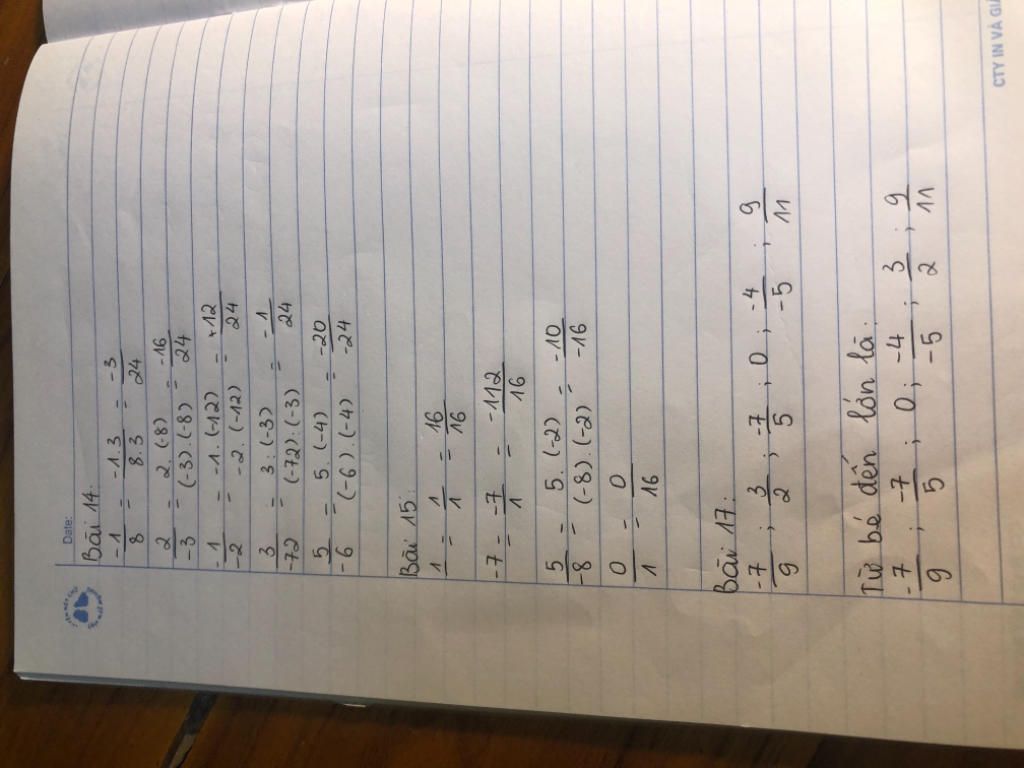 Date:
Bài 14:
-1/8 = -1.3/8.3 = -3/24
2/-3 = 2.(-8)/(-3).(-8) = -16/24
-1/-2 = -1.(-12)/-2.(-12) = +12/24
3/-72 = 3:(-3)/(-72):(-3) = -1/24
5/-6 = 5.(-4)/(-6).(-4) = -20/-24
Bài 15:
1 = 1/1 = 16/16
-7 = -7/1 = -112/16
5/-8 = 5.(-2)/(-8).(-2) = -10/-16
0/1 = 0/16
Bài 17:
-7/9; 3/2; -7/5; 0; -4/-5; 9/11
Từ bé đến lớn là:
-7/9; -7/5; 0; -4/-5; 3/2; 9/11
CTY IN VÀ GI